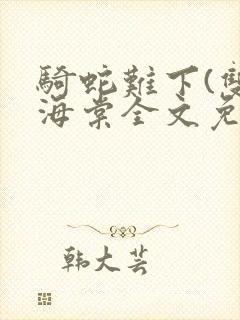 騎蛇難下(雙
海棠全文免
韩大芸